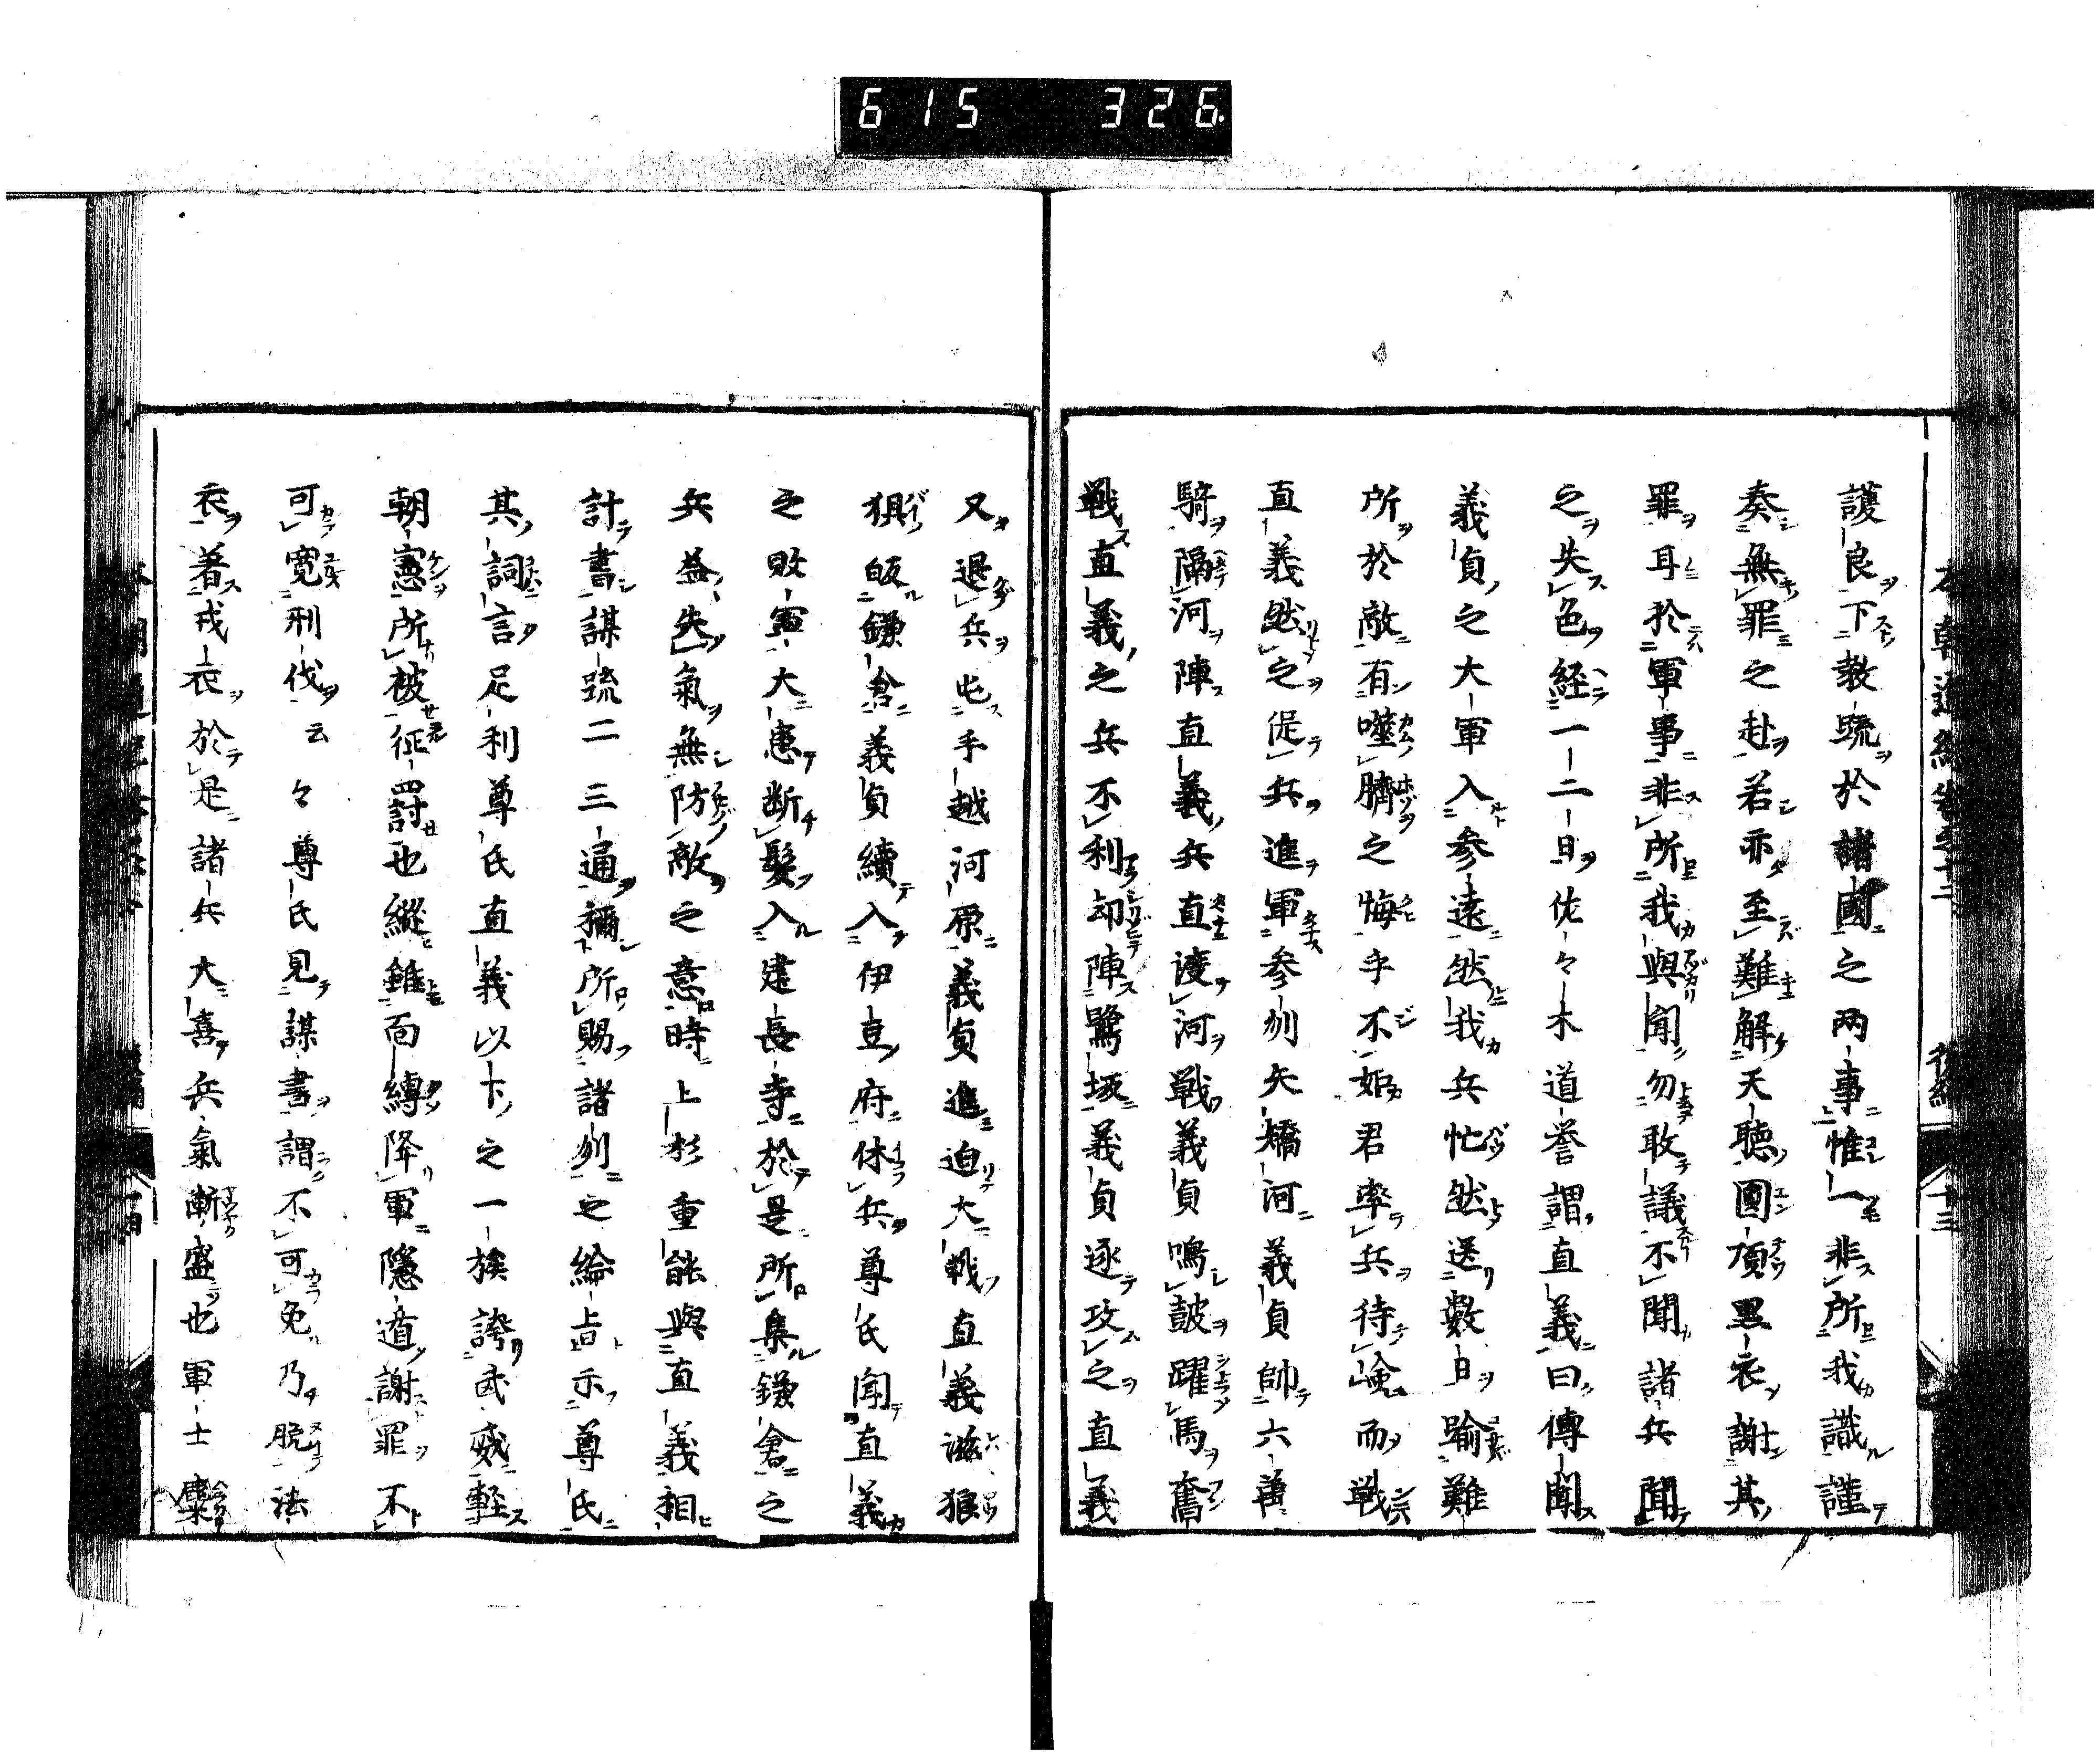 615 326.
護良下教疏於諸國之両事惟一非所我識謹
奏無罪之赴若亦至難解天聴國項黒衣謝其
罪耳於軍事非所我與聞勿敢議不聞諸兵聞
之失色経一二日佐々木道誉謂直義曰傳聞
義貞之大軍入参遠然我兵忙然送数日踰難
所於敵有噬臍之悔乎不如君率兵待嶮而戦
直義然之促兵進軍参刕矢矯河義貞帥六萬
騎隔河陣直義兵直渡河戦義貞鳴鼓躍馬奮
戦直義之兵不利却陣鷺坂義貞逐攻之直義
又退兵屯手越河原義貞進迫大戦直義滋狼
狽皈鎌倉義貞續入伊豆府休兵尊氏聞直義
之敗軍大患断髪入建長寺於是所集鎌倉之
兵益失氣無防敵之意時上杉重能與直義相
計書謀疏二三通稱所賜諸刕之綸旨示尊氏
其詞言足利尊氏直義以下之一族誇武威軽
朝憲所被征罸也縦雖面縛降軍隠遁謝罪不
可寛刑伐云々尊氏見謀書謂不可免乃脱法
衣着戎衣於是諸兵大喜兵氣漸盛也軍士麋